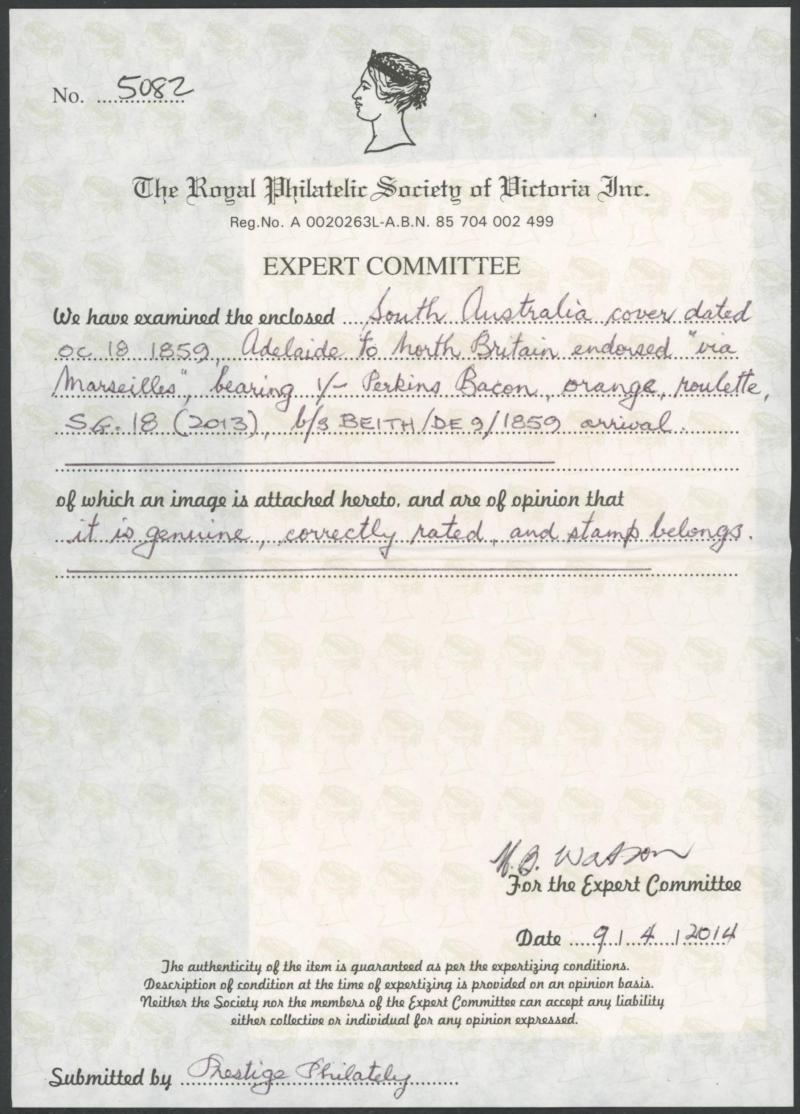 No. 5082
The Royal Philatelic Society of Victoria Inc.
Reg.No. A 0020263L-A.B.N. 85 704 002 499
EXPERT COMMITTEE
We have examined the enclosed South Australia cover dated
OC 18 1859, Adelaide to North Britain endorsed "via
Marseilles", bearing 1/- Perkins Bacon, orange, roulette,
S.G. 18 (2013), b/s BEITH/DE 9/1859 arrival.
of which an image is attached hereto, and are of opinion that
it is genuine, correctly rated, and stamp belongs.
Watson
For the Expert Committee
Date 9 / 4 / 2014
The authenticity of the item is guaranteed as per the expertizing conditions.
Description of condition at the time of expertizing is provided on an opinion basis.
Neither the Society nor the members of the Expert Committee can accept any liability
either collective or individual for any opinion expressed.
Submitted by Prestige Philately